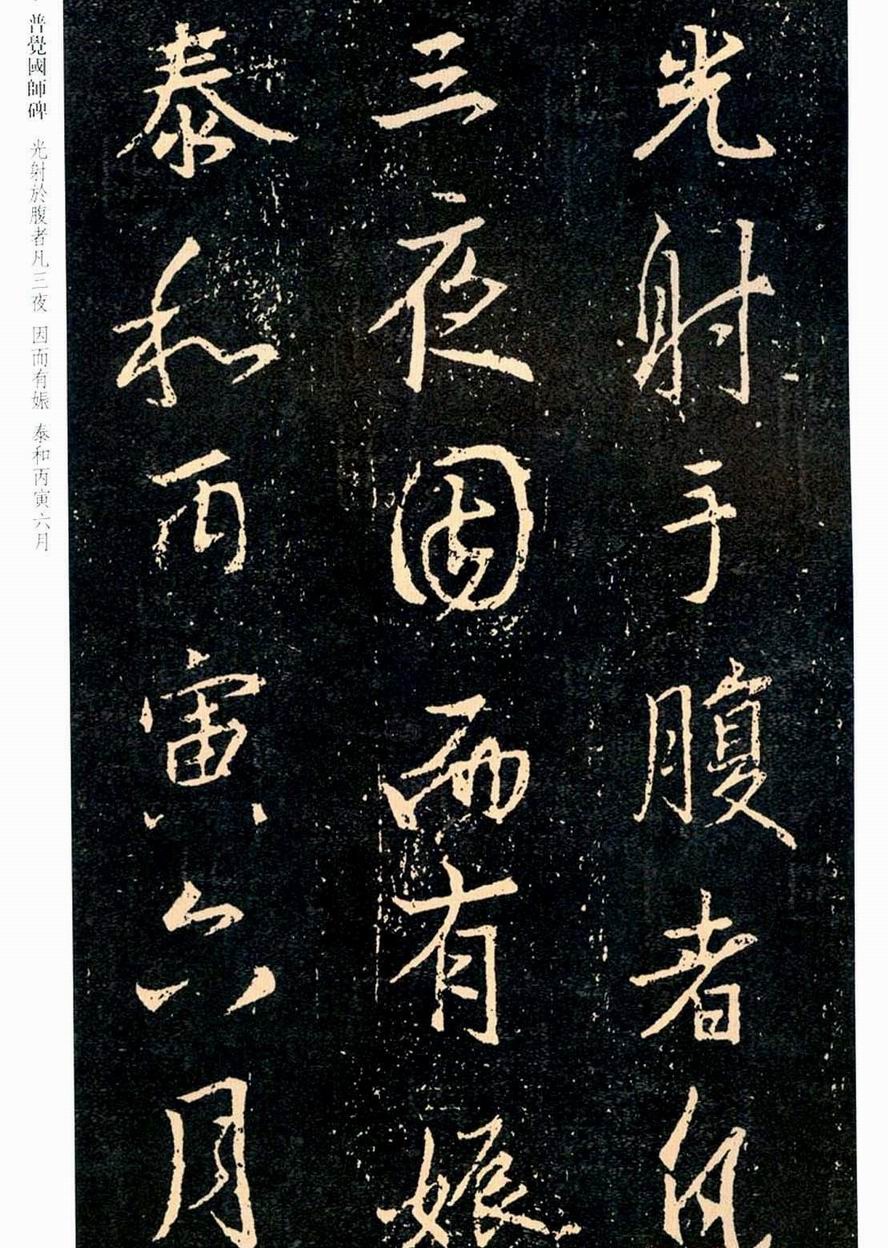 光射于腹者凡
三夜因而有娠
泰和丙寅六月
普覺國師碑 光射於腹者凡三夜 因而有娠 泰和丙寅六月